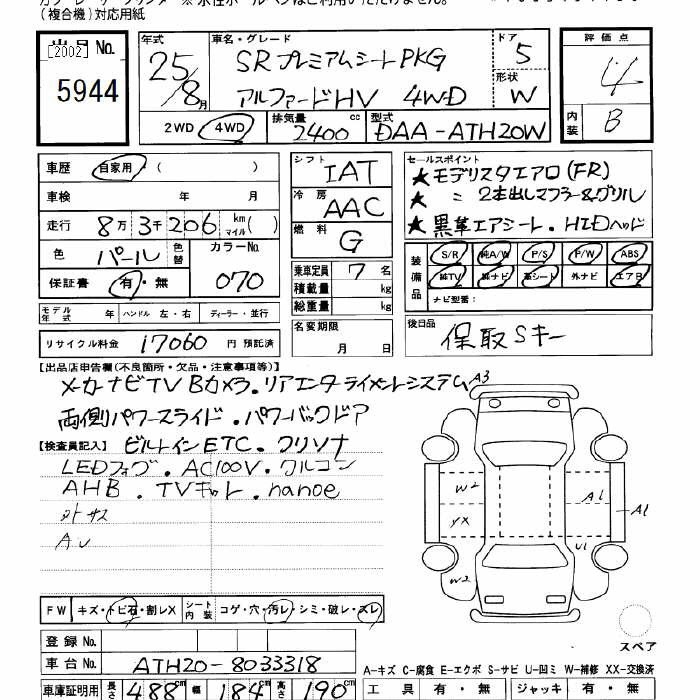 (複合機)対応用紙
[2002]
出品 No.
5944
年式
25/8月
車名・グレード
SRプレミアムシートPKG
アルファードHV 4WD
ドア
5
形状
W
評価点
4
内装
B
2WD 4WD
排気量
2400 cc
型式
DAA-ATH20W
車歴 自家用・( )
車検 年 月
走行 8万3千206 km マイル( )
色 パール 色替
カラーNo.
070
保証書 有・無
モデル年式 年 ハンドル 左・右 ディーラー・並行
リサイクル料金 17060 円 預託済
シフト
IAT
冷房
AAC
燃料
G
乗車定員 7 名
積載量 kg
総重量 kg
名変期限
月 日
セールスポイント
★モデリスタエアロ(FR)
★ 〃 2本出しマフラー&グリル
★黒革エアシート.HIDヘッド
装備品
S/R 純A/W P/S P/W ABS
純TV 純ナビ 革シート 外ナビ エアB
ナビ型番:
後日品
保取Sキー
【出品店申告欄(不良箇所・欠品・注意事項等)】
メーカーナビTV Bカメラ.リアエンターテイメントシステム
両側パワースライド.パワーバックドア
【検査員記入】
ビルトインETC.クリソナ
LEDフォグ.AC100V.クルコン
AHB.TVキット.nanoe
外トサス
A3
W2
A1
A1
YX
U1
W2
スペア
FW キズ・トビ石・割レX シート内装 コゲ・穴・汚レ・シミ・破レ・スレ
登録 No.
車台 No. ATH20-8033318
車庫証明用 長さ 488cm 幅 184cm 高さ 190cm
A-キズ C-腐食 E-エクボ S-サビ U-凹ミ W-補修 XX-交換済
工具 有・無 ジャッキ 有・無